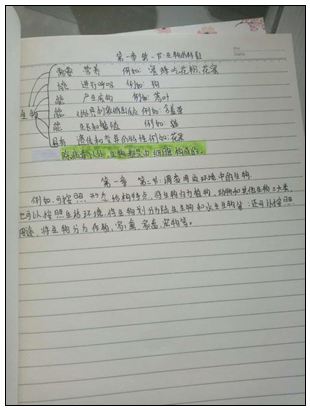 第一章 第一节 生物的特征
生物
需要 营养 例如:蜜蜂吃花粉,花蜜
能 进行呼吸 例如:狗
能 产生废物 例如:落叶
能 对外界刺激做出反应 例如:含羞草
能 生长和繁殖 例如:
具有 遗传和变异的特性 例如:花
除病毒以外,生物都是由细胞构成的。
第一章 第二节:调查周边环境中的生物
例如,可按照 形态 结构特点,将生物分为植物、动物和其他生物三大类,
也可以按照生活环境,将生物划分为陆生生物和水生生物等;还可以按照
用途,将生物分为作物、家禽、家畜、宠物等。